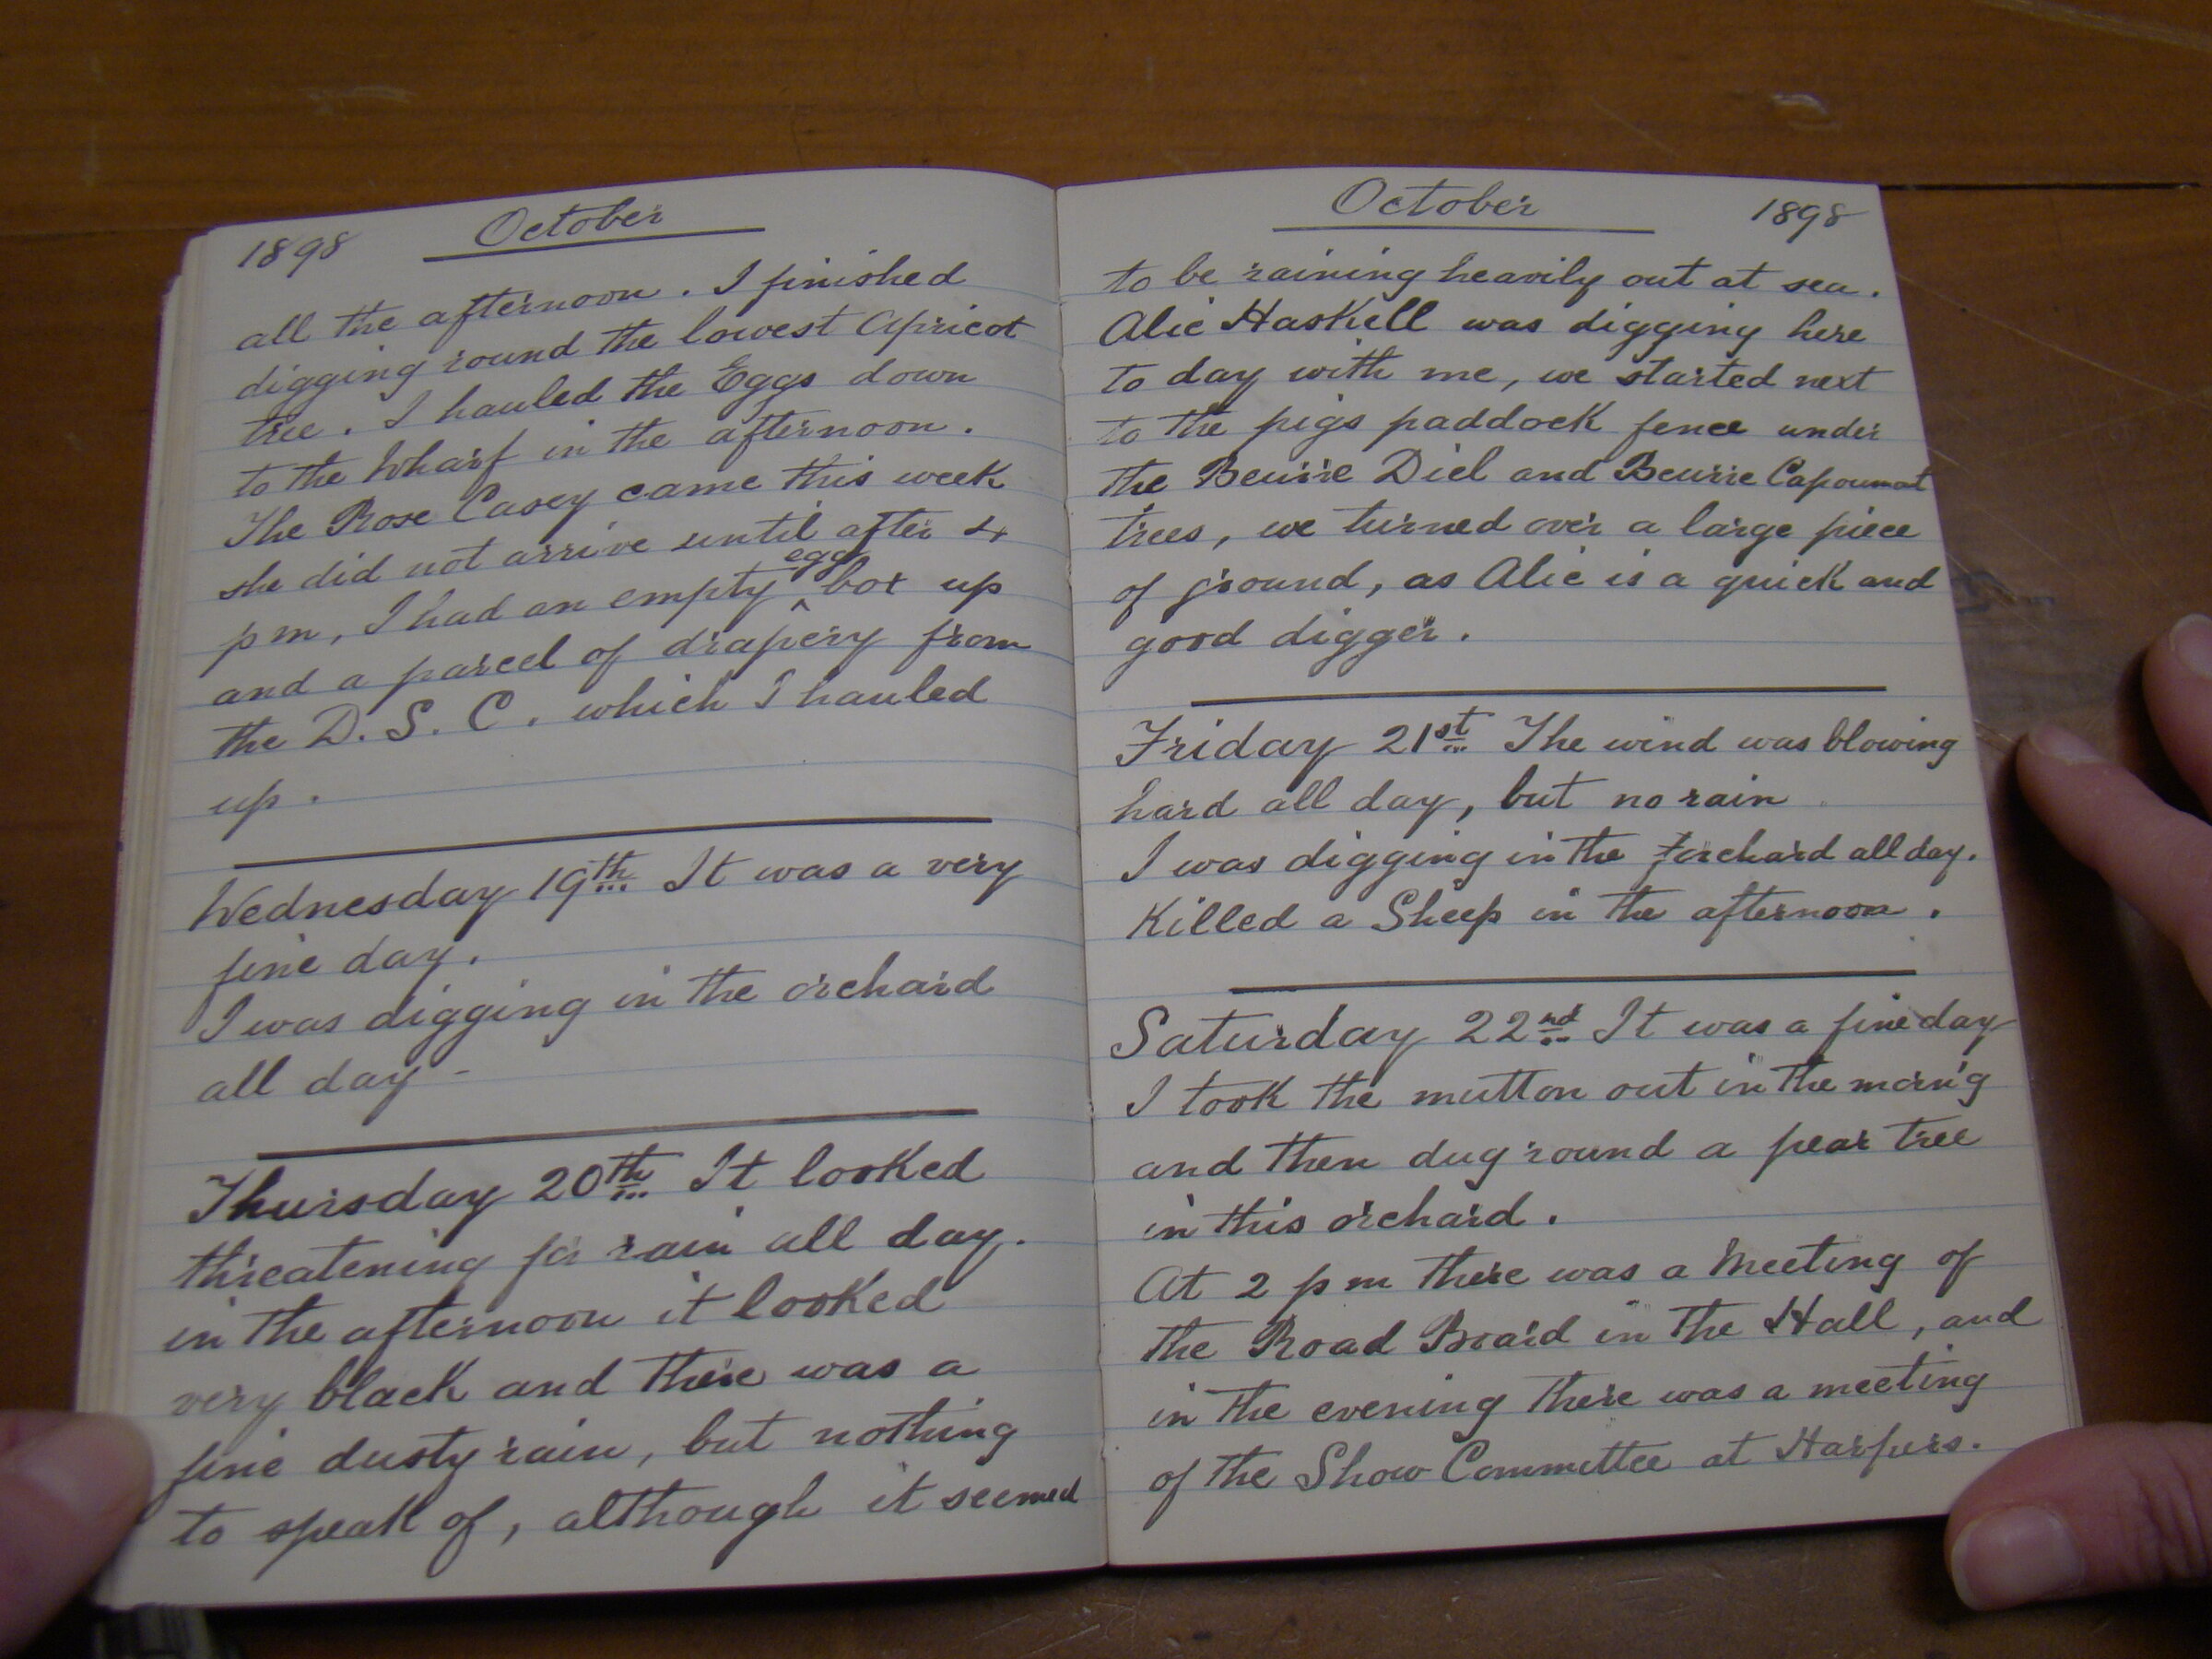 1898 October
all the afternoon. I finished
digging round the lowest Apricot
tree. I hauled the Eggs down
to the Wharf in the afternoon.
The Rose Casey came this week
she did not arrive until after 4
pm, I had an empty egg box up
and a parcel of drapery from
the D. S. C. which I hauled
up.
Wednesday 19th It was a very
fine day.
I was digging in the orchard
all day -
Thursday 20th It looked
threatening for rain all day.
in the afternoon it looked
very black and there was a
fine dusty rain, but nothing
to speak of, although it seemed
October 1898
to be raining heavily out at sea.
Alic Haskell was digging here
to day with me, we started next
to the pigs paddock fence under
the Beurre Diel and Beurre Capoumat
trees, we turned over a large piece
of ground, as Alic is a quick and
good digger.
Friday 21st The wind was blowing
hard all day, but no rain
I was digging in the orchard all day.
Killed a Sheep in the afternoon.
Saturday 22nd It was a fine day
I took the mutton out in the morn'g
and then dug round a pear tree
in this orchard.
At 2 pm there was a Meeting of
the Road Board in the Hall, and
in the evening there was a meeting
of the Show Committee at Harpers.